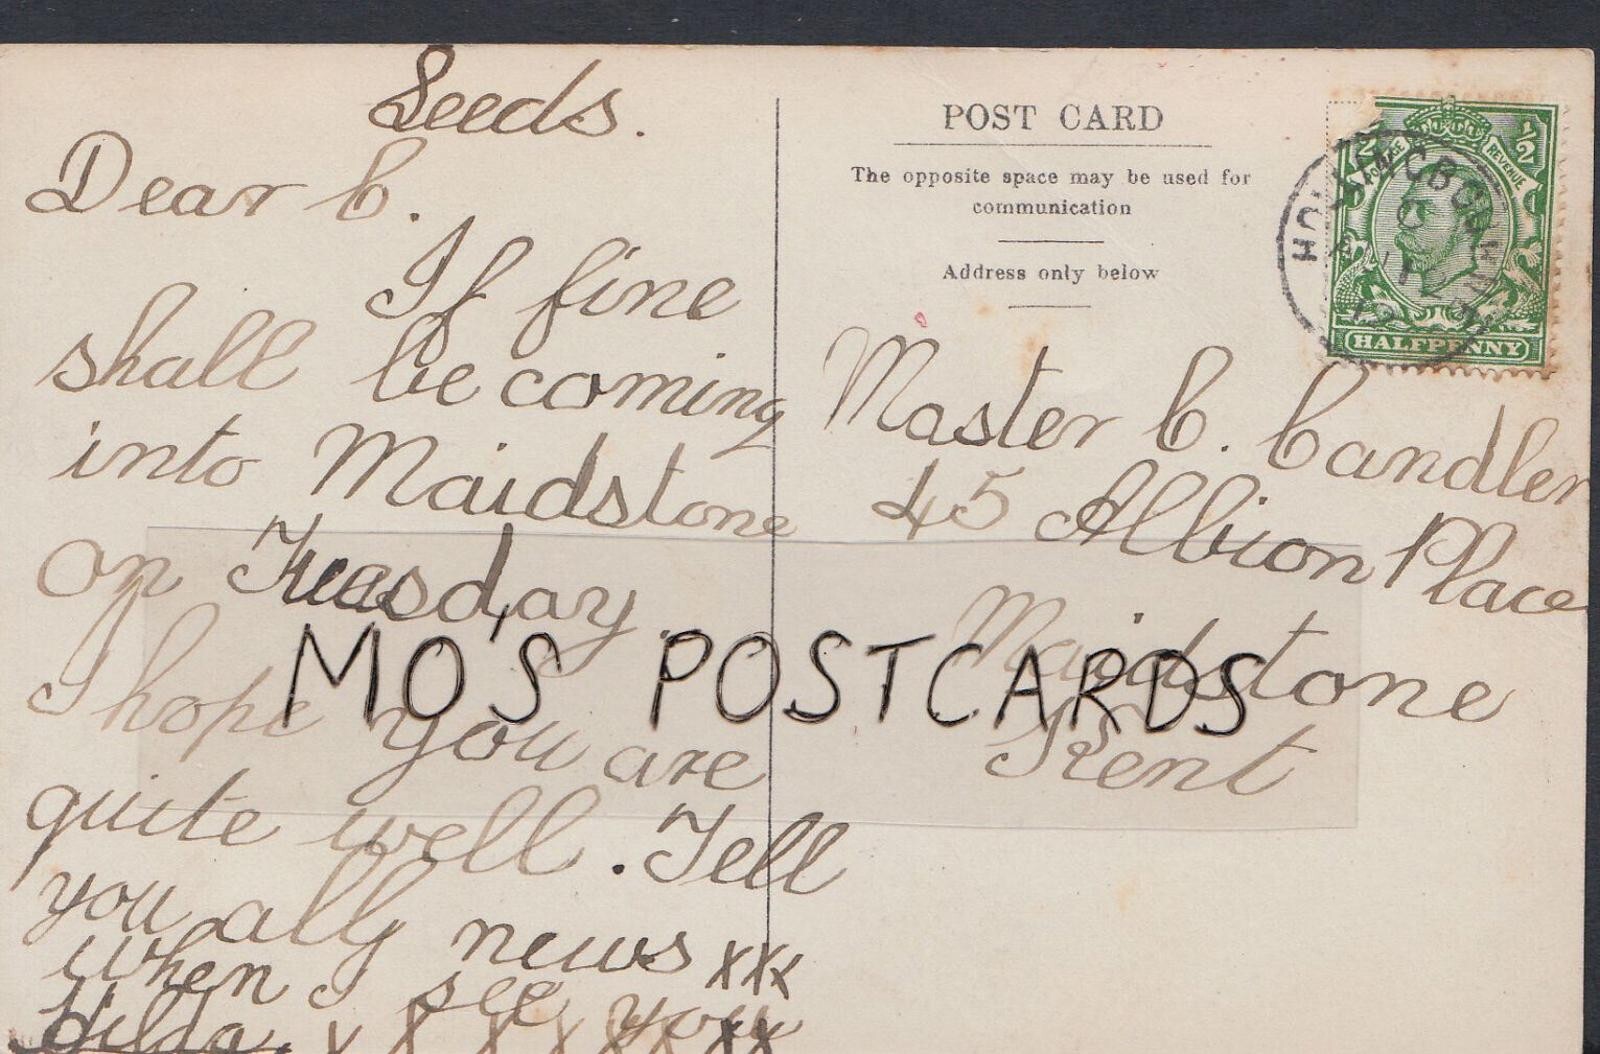 Leeds.
Dear C.
If fine
shall be coming
into Maidstone
on Tuesday.
I hope you are
quite well. Tell
you all news xxx
when I see you
Hilda. x x x x x x xx
POST CARD
The opposite space may be used for
communication
Address only below
Master C. Candler
45 Albion Place
Maidstone
Kent
1/2 POSTAGE REVENUE 1/2
HALFPENNY
HOLLINGBOURNE
MO'S POSTCARDS